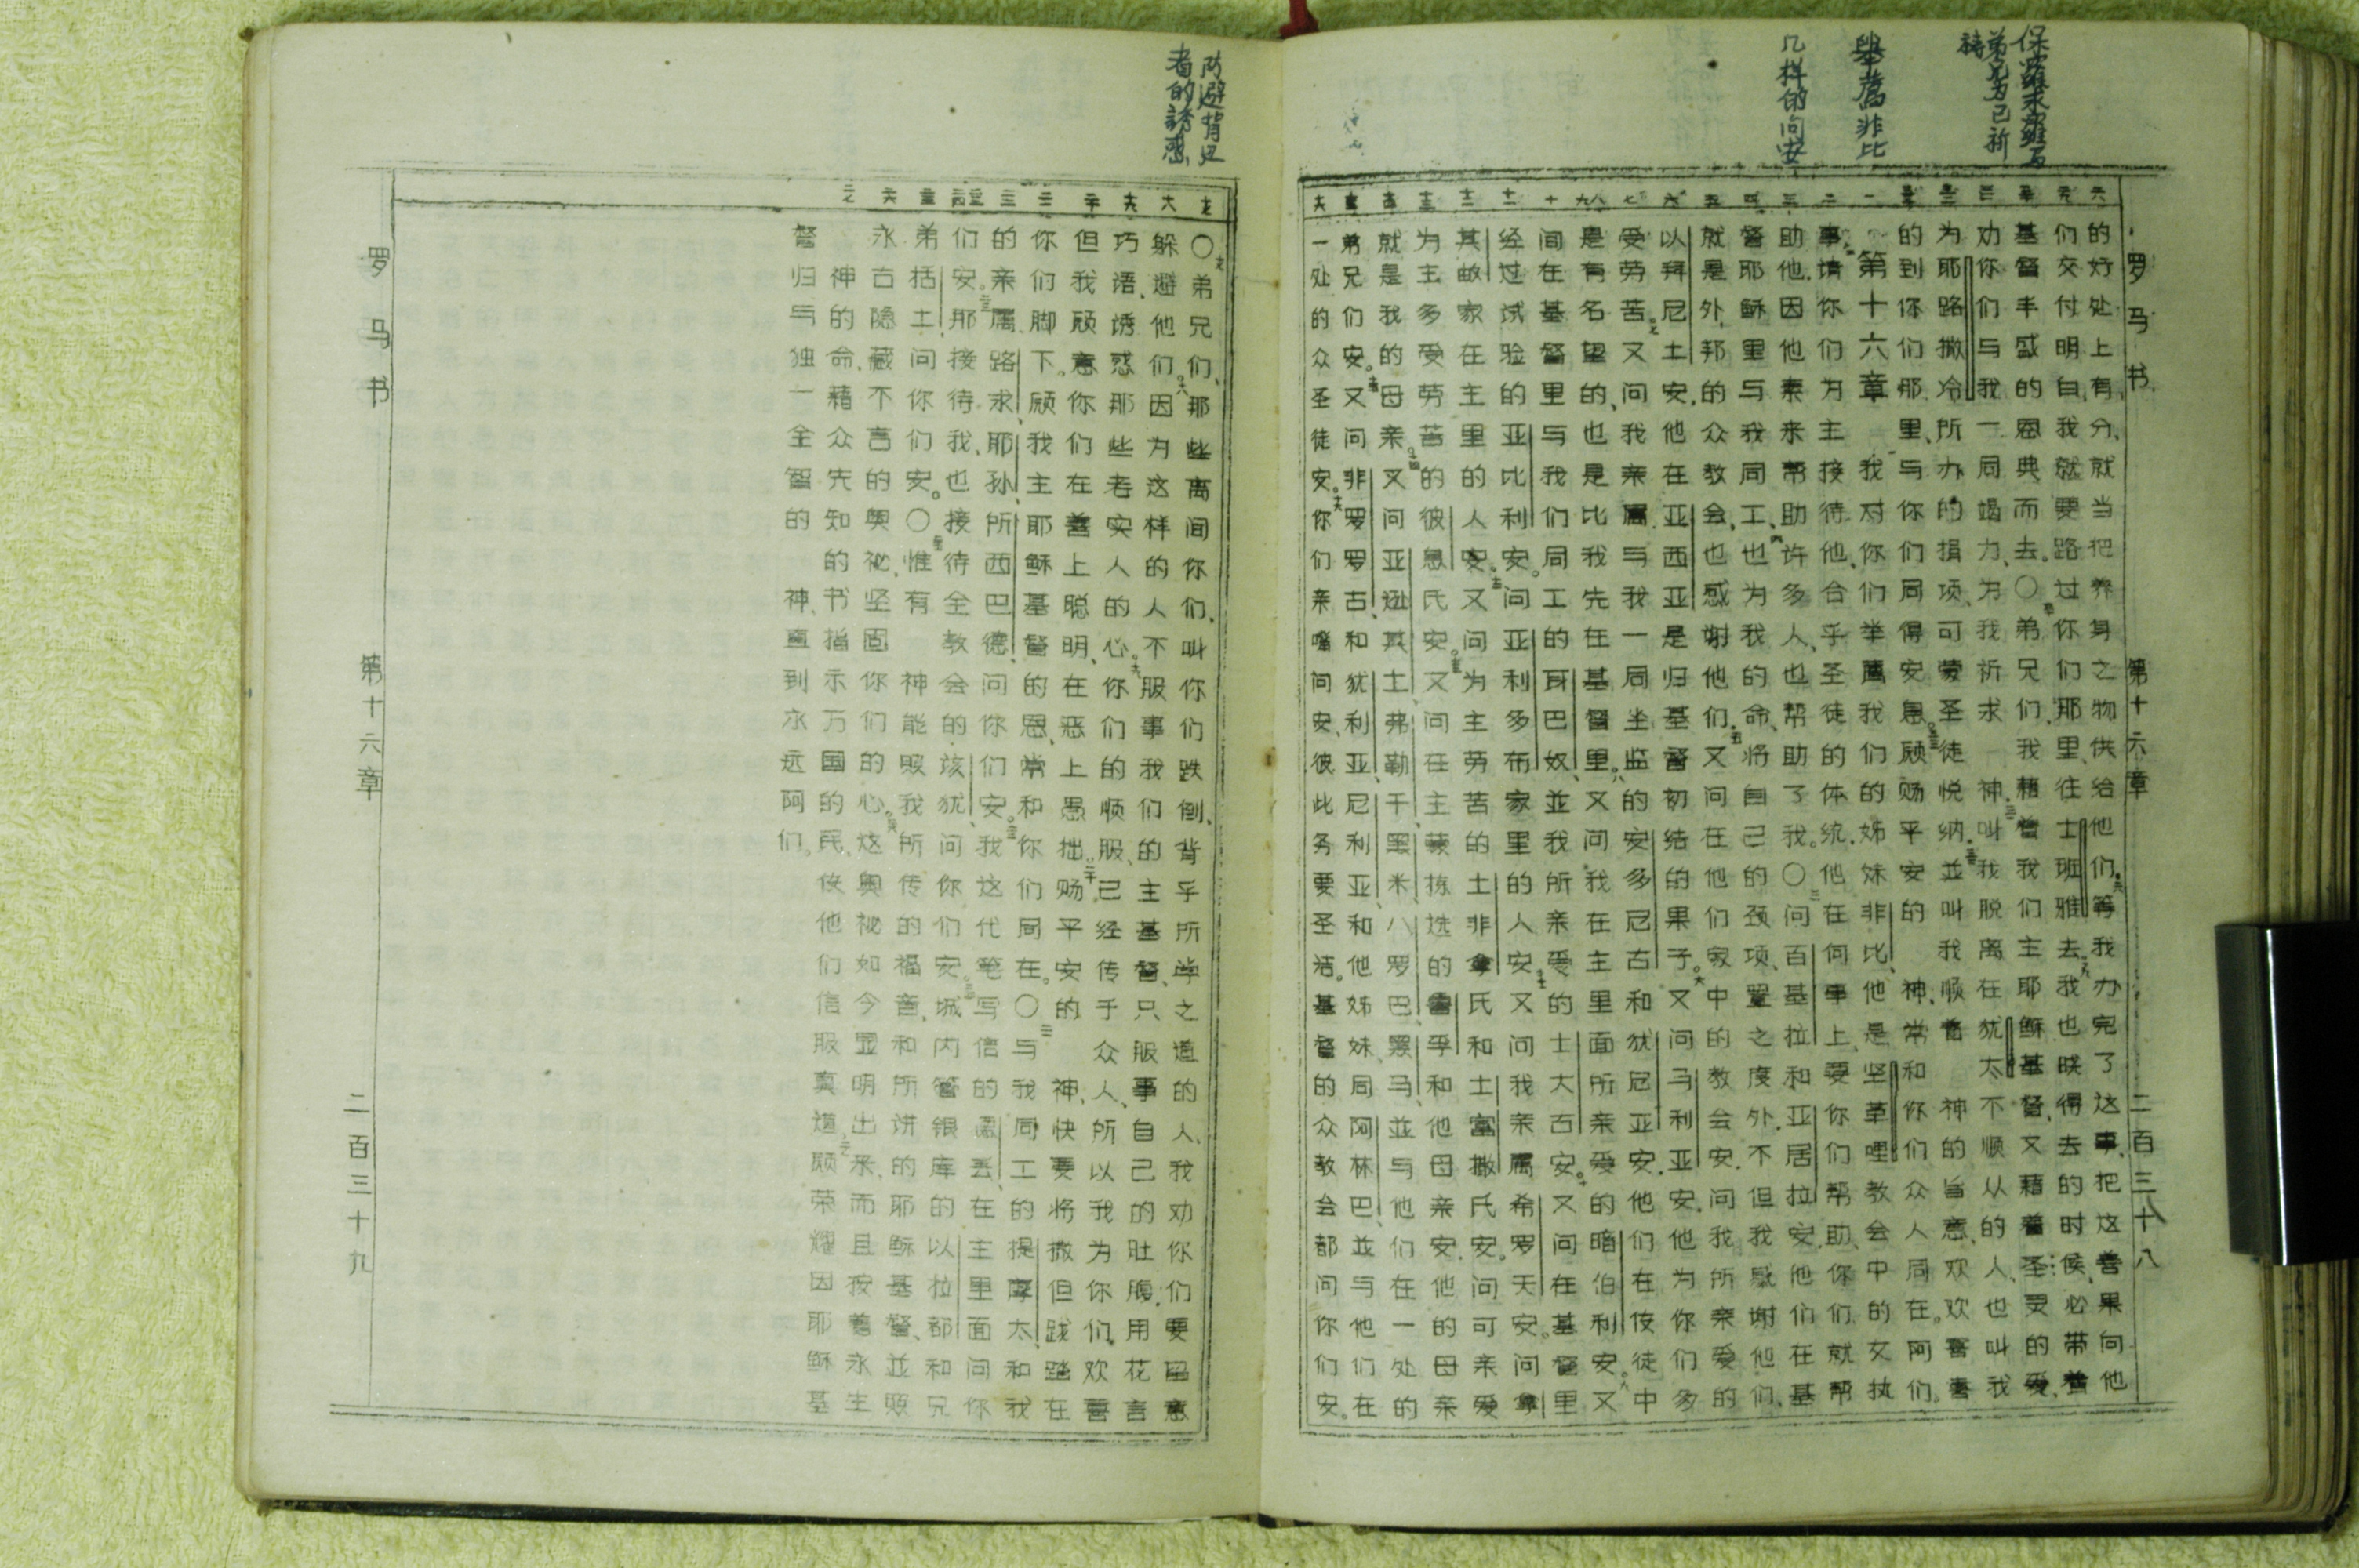 保羅求羅馬
弟兄为己祈
禱
舉薦非比
几样的问安
罗马书 第十六章 二百三十八
的好处上有分、就当把养身之物供给他们、等我办完了这事、把这善果向他
们交付明白、我就要路过你们耶里、往士班雅去。我也晓得去的时候、必带着
基督丰盛的恩典而去。○弟兄们、我藉着我们主耶稣基督、又藉着圣灵的爱、
劝你们与我一同竭力、为我祈求 神、叫我脱离在犹太不顺从的人、也叫我
为耶路撒冷所办的捐项、可蒙圣徒悦纳、並叫我顺着 神的旨意、欢欢喜喜
的到你们那里、与你们同得安息。顾赐平安的 神、常和你们众人同在。阿们。
第十六章 我对你们举薦我们的姊妹非比、他是坚革哩教会中的女执
事、请你们为主接待他、合乎圣徒的体统、他在何事上、要你们帮助、你们就帮
助他、因他素来帮助许多人、也帮助了我。○问百基拉和亚居拉安、他们在基
督耶稣里与我同工、也为我的命、将自己的颈项、置之度外、不但我感谢他们、
就是外邦的众教会、也感谢他们、又问在他们家中的教会安、问我所亲爱的
以拜尼土安、他在亚西亚是归基督初结的果子。又问马利亚安、他为你们多
受劳苦。又问我亲属、与我一同坐监的安多尼古和犹尼亚安、他们在使徒中
是有名望的、也是比我先在基督里。又问我在主里面所亲爱的暗伯利安。又
问在基督里与我们同工的耳巴奴、並我所亲爱的士大古安。又问在基督里
经过试验的亚比利安。问亚利多布家里的人安。又问我亲属希罗天安。问拿
其故家在主里的人安。又问为主劳苦的土非拿氏和土富撒氏安。问可亲爱
为主多受劳苦的彼息氏安。又问在主蒙拣选的鲁孚和他母亲安、他的母亲
就是我的母亲。又问亚逊其土、弗勒干、黑米、八罗巴、黑马、並与他们在一处的
弟兄们安。又问非罗罗古和犹利亚、尼利亚、和他姊妹、同阿林巴、並与他们在
一处的众圣徒安。你们亲嘴问安、彼此务要圣洁。基督的众教会都问你们安。
防避背道
者的誘惑
○弟兄们、那些离间你们、叫你们跌倒、背乎所学之道的人、我劝你们要留意
躲避他们。因为这样的人不服事我们的主基督、只服事自己的肚腹、用花言
巧语、诱惑那些老实人的心。你们的顺服、已经传于众人、所以我为你们欢喜
但我顾意你们在善上聪明、在恶上愚拙。赐平安的 神、快要将撒但践踏在
你们脚下。顾我主耶稣基督的恩、常和你们同在。○与我同工的提摩太、和我
的亲属路求、耶孙、所西巴德、问你们安。我这代笔写信的德丢、在主里面问你
们安。那接待我、也接待全教会的该犹、问你们安。城内管银库的以拉都、和兄
弟括土、问你们安。○惟有 神能照我所传的福音、和所讲的耶稣基督、並照
永古隐藏不言的奥祕、坚固你们的心。这奥祕如今显明出来、而且按着永生
神的命、藉众先知的书指示万国的民、使他们信服真道、顾荣耀因耶稣基
督归与独一全智的 神、直到永远阿们。
罗马书 第十六章 二百三十九